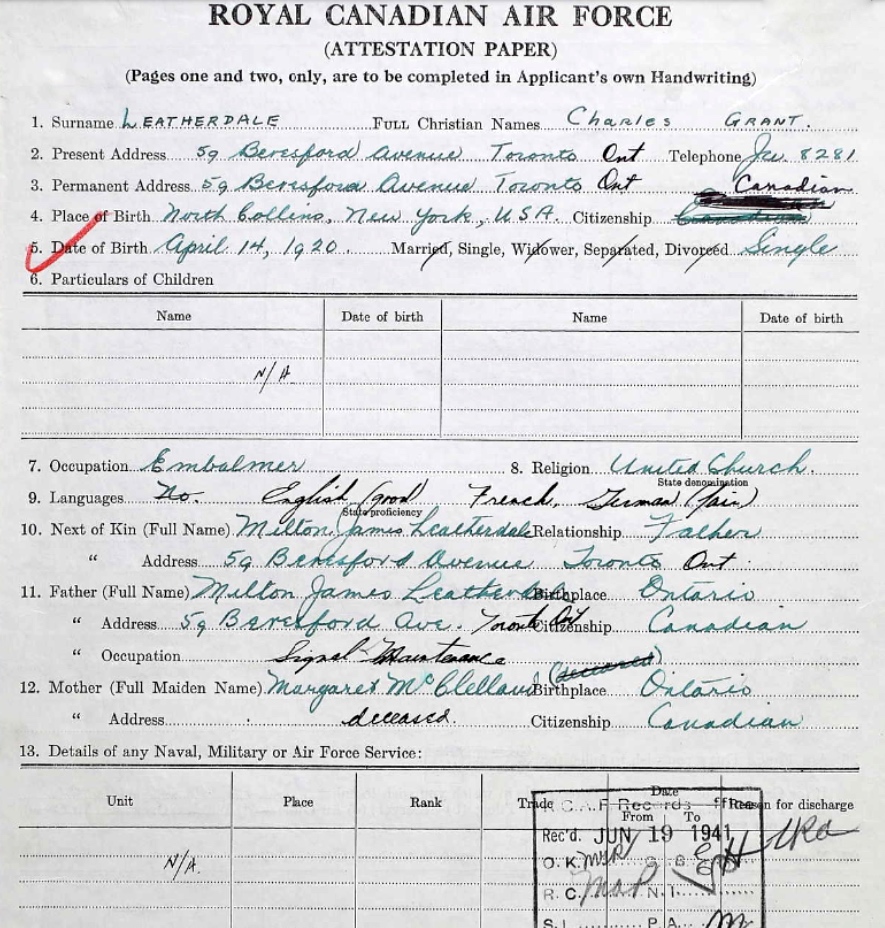 ROYAL CANADIAN AIR FORCE
(ATTESTATION PAPER)
(Pages one and two, only, are to be completed in Applicant's own Handwriting)
1. Surname LEATHERDALE FULL Christian Names Charles GRANT.
2. Present Address 59 Beresford Avenue Toronto Ont Telephone Ju. 8281
3. Permanent Address 59 Beresford Avenue Toronto Ont Canadian
4. Place of Birth North Collins, New York, USA. Citizenship
5. Date of Birth April 14, 1920. Married, Single, Widower, Separated, Divorced Single
6. Particulars of Children
Name Date of birth Name Date of birth
N/A
7. Occupation Embalmer 8. Religion United Church.
State denomination
9. Languages No. English (good) French, German (fair)
State proficiency
10. Next of Kin (Full Name) Milton James Leatherdale Relationship Father
" Address 59 Beresford Avenue Toronto Ont.
11. Father (Full Name) Milton James Leatherdale Birthplace Ontario
" Address 59 Beresford Ave. Toronto Ont Citizenship Canadian
" Occupation Signal Maintenance
(deceased)
12. Mother (Full Maiden Name) Margaret McClelland Birthplace Ontario
" Address deceased. Citizenship Canadian
13. Details of any Naval, Military or Air Force Service:
Unit Place Rank Trade Date From To Reason for discharge
R.C.A.F Records
Rec'd. JUN 19 1941
N/A.
O.K.
R.C. N.I.
S.I. P.A.